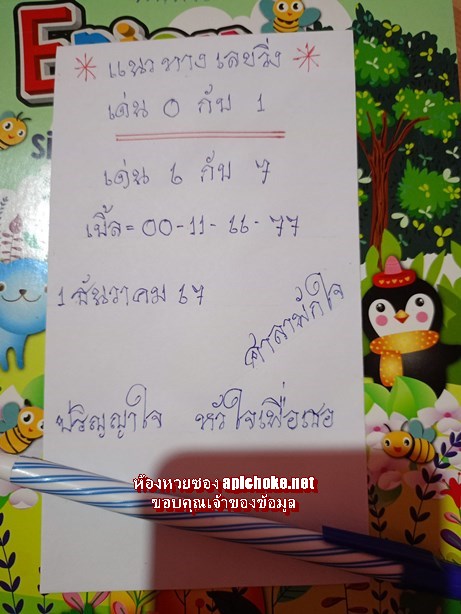 * แนวทางเลขวิ่ง *
เด่น 0 กับ 1
เด่น 6 กับ 7
เบิ้ล = 00-11-66-77
1 ธันวาคม 67
ศาลาพักใจ
ปริญญาใจ หัวใจเพื่อเธอ
ห้องหวยซอง apichoke.net
ขอบคุณเจ้าของข้อมูล